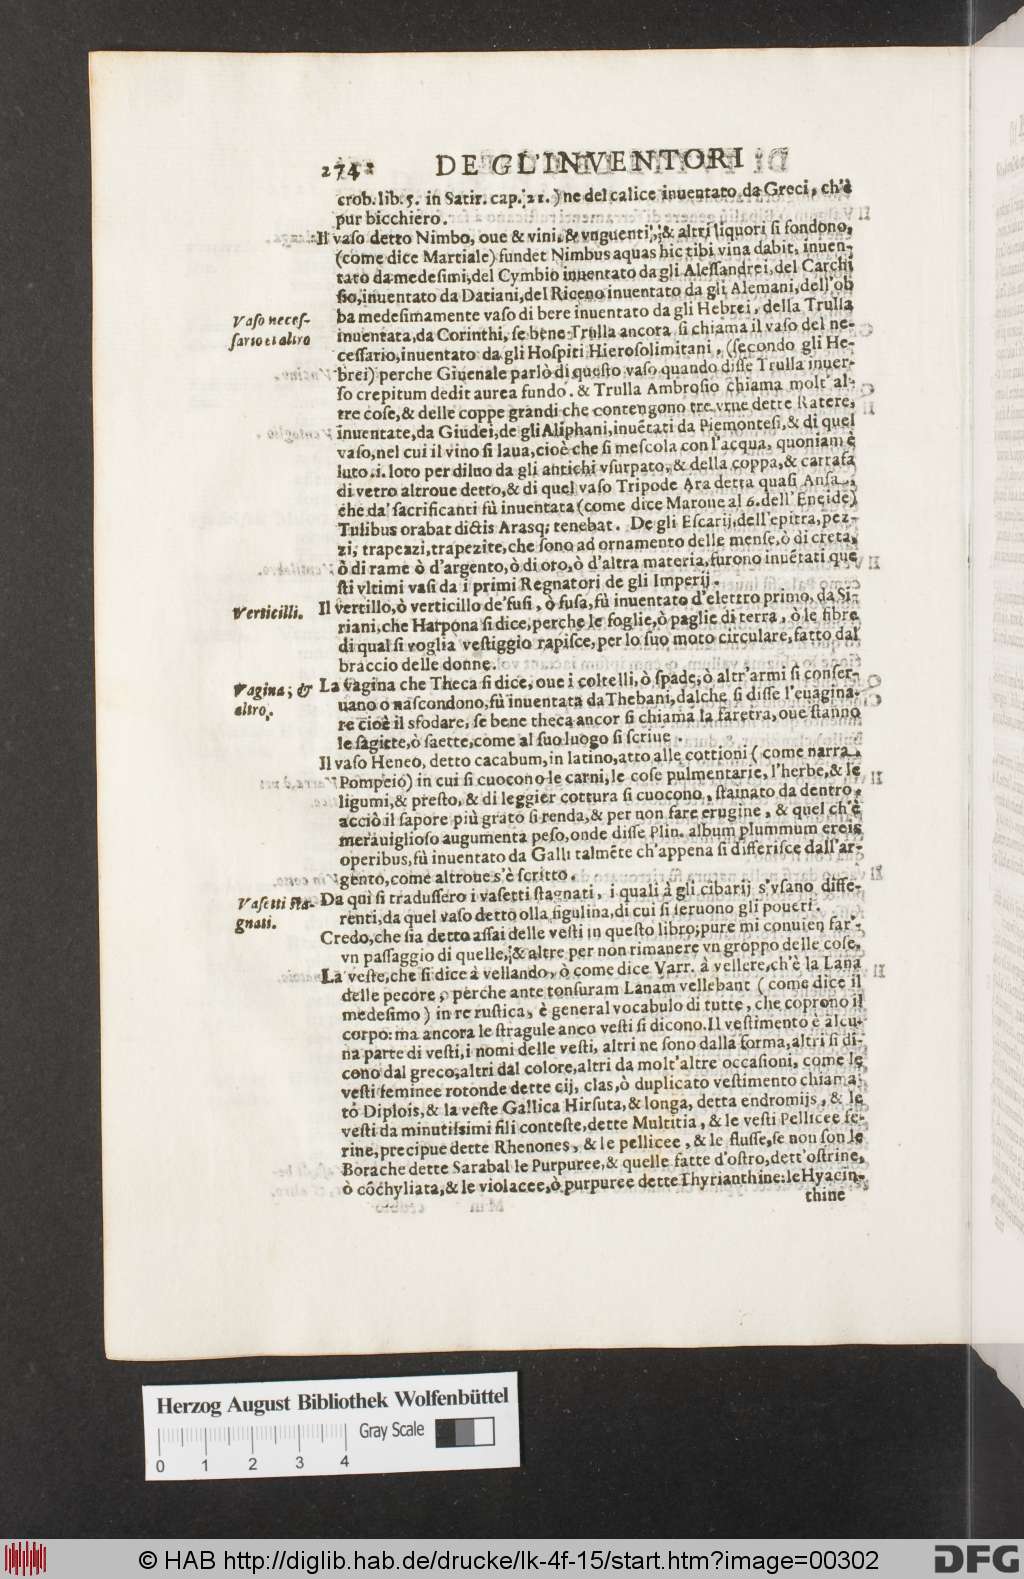 274 DE GL'INVENTORI
crob. lib. 5. in Satir. cap. 21. ) ne del calice inuentato da Greci, ch'è
pur bicchiero.
Il vaso detto Nimbo, oue & vini, & vnguenti, & altri liquori si fondono,
(come dice Martiale) fundet Nimbus aquas hic tibi vina dabit, inuen-
tato da medesimi, del Cymbio inuentato da gli Alessandrei, del Carchi
sio, inuentato da Datiani, del Riceno inuentato da gli Alemani, dell'ob
ba medesimamente vaso di bere inuentato da gli Hebrei, della Trulla
Vaso neces-
sario et altro
inuentata, da Corinthi, se bene Trulla ancora si chiama il vaso del ne-
cessario, inuentato da gli Hospiti Hierosolimitani, (secondo gli He-
brei) perche Giuenale parlò di questo vaso quando disse Trulla inuer-
so crepitum dedit aurea fundo. & Trulla Ambrosio chiama molt'al-
tre cose, & delle coppe grandi che contengono tre vrne dette Ratere,
inuentate, da Giudei, de gli Aliphani, inuētati da Piemontesi, & di quel
vaso, nel cui il vino si laua, cioè che si mescola con l'acqua, quoniam è
luto .i. loto per diluo da gli antichi vsurpato, & della coppa, & carrafa
di vetro altroue detto, & di quel vaso Tripode Ara detta quasi Ansa,
che da' sacrificanti fù inuentata (come dice Marone al 6. dell'Eneide)
Tulibus orabat dictis Arasq; tenebat. De gli Escarij, dell'epitra, pez-
zi, trapeazi, trapezite, che sono ad ornamento delle mense, ò di creta,
ò di rame ò d'argento, ò di oro, ò d'altra materia, furono inuētati que
sti vltimi vasi da i primi Regnatori de gli Imperij.
Verticilli.
Il vertillo, ò verticillo de' fusi, ò fusa, fù inuentato d'elettro primo, da Si-
riani, che Harpona si dice, perche le foglie, ò paglie di terra, ò le fibre
di qual si voglia vestiggio rapisce, per lo suo moto circulare, fatto dal
braccio delle donne.
Vagina; &
altro.
La vagina che Theca si dice, oue i coltelli, ò spade, ò altr'armi si conser-
uano o nascondono, fù inuentata da Thebani, dalche si disse l'euagina-
re cioè il sfodare, se bene theca ancor si chiama la faretra, oue stanno
le sagitte, ò saette, come al suo luogo si scriue.
Il vaso Heneo, detto cacabum, in latino, atto alle cottioni ( come narra
Pompeio) in cui si cuocono le carni, le cose pulmentarie, l'herbe, & le
ligumi, & presto, & di leggier cottura si cuocono, stainato da dentro,
acciò il sapore più grato si renda, & per non fare erugine, & quel ch'è
merauiglioso augumenta peso, onde disse Plin. album plummum ereis
operibus, fù inuentato da Galli talmēte ch'appena si differisce dall'ar-
gēnto, come altroue s'è scritto.
Vasetti sta-
gnati.
Da qui si tradussero i vasetti stagnati, i quali à gli cibarij s'vsano diffe-
renti, da quel vaso detto olla figulina, di cui si seruono gli poueri.
Credo, che sia detto assai delle vesti in questo libro; pure mi conuien far'
vn passaggio di quelle, & altre per non rimanere vn groppo delle cose,
La veste, che si dice à vellando, ò come dice Varr. à vellere, ch'è la Lana
delle pecore, perche ante tonsuram Lanam vellebant ( come dice il
medesimo ) in re rustica, è general vocabulo di tutte, che coprono il
corpo: ma ancora le stragule anco vesti si dicono. Il vestimento è alcu-
na parte di vesti, i nomi delle vesti, altri ne sono dalla forma, altri si di-
cono dal greco, altri dal colore, altri da molt'altre occasioni, come le
vesti feminee rotonde dette cij, clas, ò duplicato vestimento chiama-
tò Diplois, & la veste Gallica Hirsuta, & longa, detta endromijs, & le
vesti da minutissimi fili conteste, dette Multitia, & le vesti Pellicee fe-
rine, precipue dette Rhenones, & le pellicee, & le flusse, se non son le
Borache dette Sarabal le Purpuree, & quelle fatte d'ostro, dett'ostrine,
ò cōchyliata, & le violacee, ò purpuree dette Thyrianthine: le Hyacin-
thine
Herzog August Bibliothek Wolfenbüttel
Gray Scale
0 1 2 3 4
© HAB http://diglib.hab.de/drucke/lk-4f-15/start.htm?image=00302
DFG